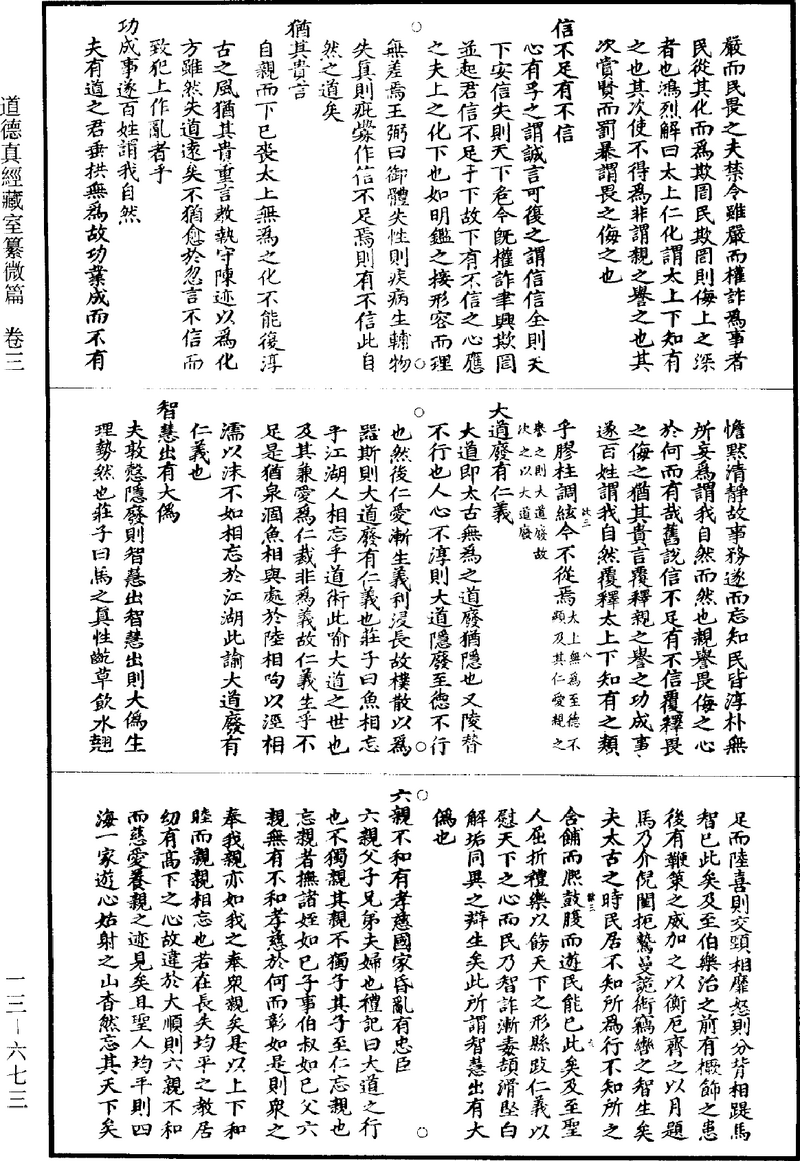 嚴而民畏之夫禁令雖嚴而權詐為事者
民從其化而為欺罔民欺罔則侮上之深
者也鴻烈解曰太上仁化謂太上下知有
之也其次使不得為非謂親之譽之也其
次賞賢而罰暴謂畏之侮之也
信不足有不信
心有孚之謂誠言可復之謂信信全則天
下安信失則天下危今既權詐聿興欺罔
並起君信不足于下故下有不信之心應
之夫上之化下也如明鑑之接形容而理
無差焉王弼曰御體失性則疾病生輔物
失真則疵釁作信不足焉則有不信此自
然之道矣
猶其貴言
自親而下已喪太上無為之化不能復淳
古之風猶其貴重言教執守陳迹以為化
方雖然失道遠矣不猶愈於忽言不信而
致犯上作亂者乎
功成事遂百姓謂我自然
夫有道之君垂拱無為故功業成而不有
憺默清靜故事務遂而忘知民皆淳朴無
所妄為謂我自然而然也親譽畏侮之心
於何而有哉舊說信不足有不信覆釋畏
之侮之猶其貴言覆釋親之譽之功成事
遂百姓謂我自然覆釋太上下知有之類
乎膠柱調絃今不從焉太上無為至德不
顯及其仁愛親之
譽之則大道廢故
次之以大道廢
大道廢有仁義
大道即太古無為之道廢猶隱也又陵替
不行也人心不淳則大道隱廢至德不行
也然後仁愛漸生義利浸長故樸散以為
器斯則大道廢有仁義也莊子曰魚相忘
乎江湖人相忘乎道術此喻大道之世也
及其兼愛為仁裁非為義故仁義生乎不
足是猶泉涸魚相與處於陸相呴以溼相
濡以沫不如相忘於江湖此諭大道廢有
仁義也
智慧出有大偽
夫敦愨隱廢則智慧出智慧出則大偽生
理勢然也莊子曰馬之真性齕草飲水翹
足而陸喜則交頸相靡怒則分背相踶馬
智已此矣及至伯樂治之前有橛飾之患
後有鞭策之威加之以衡扼齊之以月題
馬乃介倪闉扼鷙曼詭銜竊轡之智生矣
夫太古之時民居不知所為行不知所之
含餔而熙鼓腹而遊民能已此矣及至聖
人屈折禮樂以飭天下之形縣跂仁義以
慰天下之心而民乃智詐漸毒頡滑堅白
解垢同異之辯生矣此所謂智慧出有大
偽也
六親不和有孝慈國家昏亂有忠臣
六親父子兄弟夫婦也禮記曰大道之行
也不獨親其親不獨子其子至仁忘親也
忘親者撫諸姪如已子事伯叔如已父六
親無有不和孝慈於何而彰如是則眾之
奉我親亦如我之奉眾親矣是以上下和
睦而親親相忘也若在長矣均平之教居
幼有高下之心故違於大順則六親不和
而慈愛養親之迹見矣且聖人均平則四
海一家遊心姑射之山杳然忘其天下矣
道德真經藏室纂微篇 卷三
一三-六七三